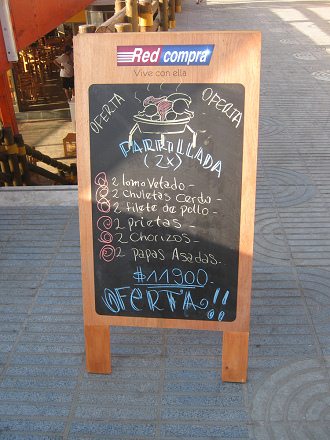 Red compra
Vive con ella
OFERTA OFERTA
PARRILLADA
(2x)
2 lomo Vetado -
2 chuletas Cerdo -
2 filete de pollo -
2 prietas -
2 Chorizos -
2 papas Asadas -
$11900-
OFERTA!!